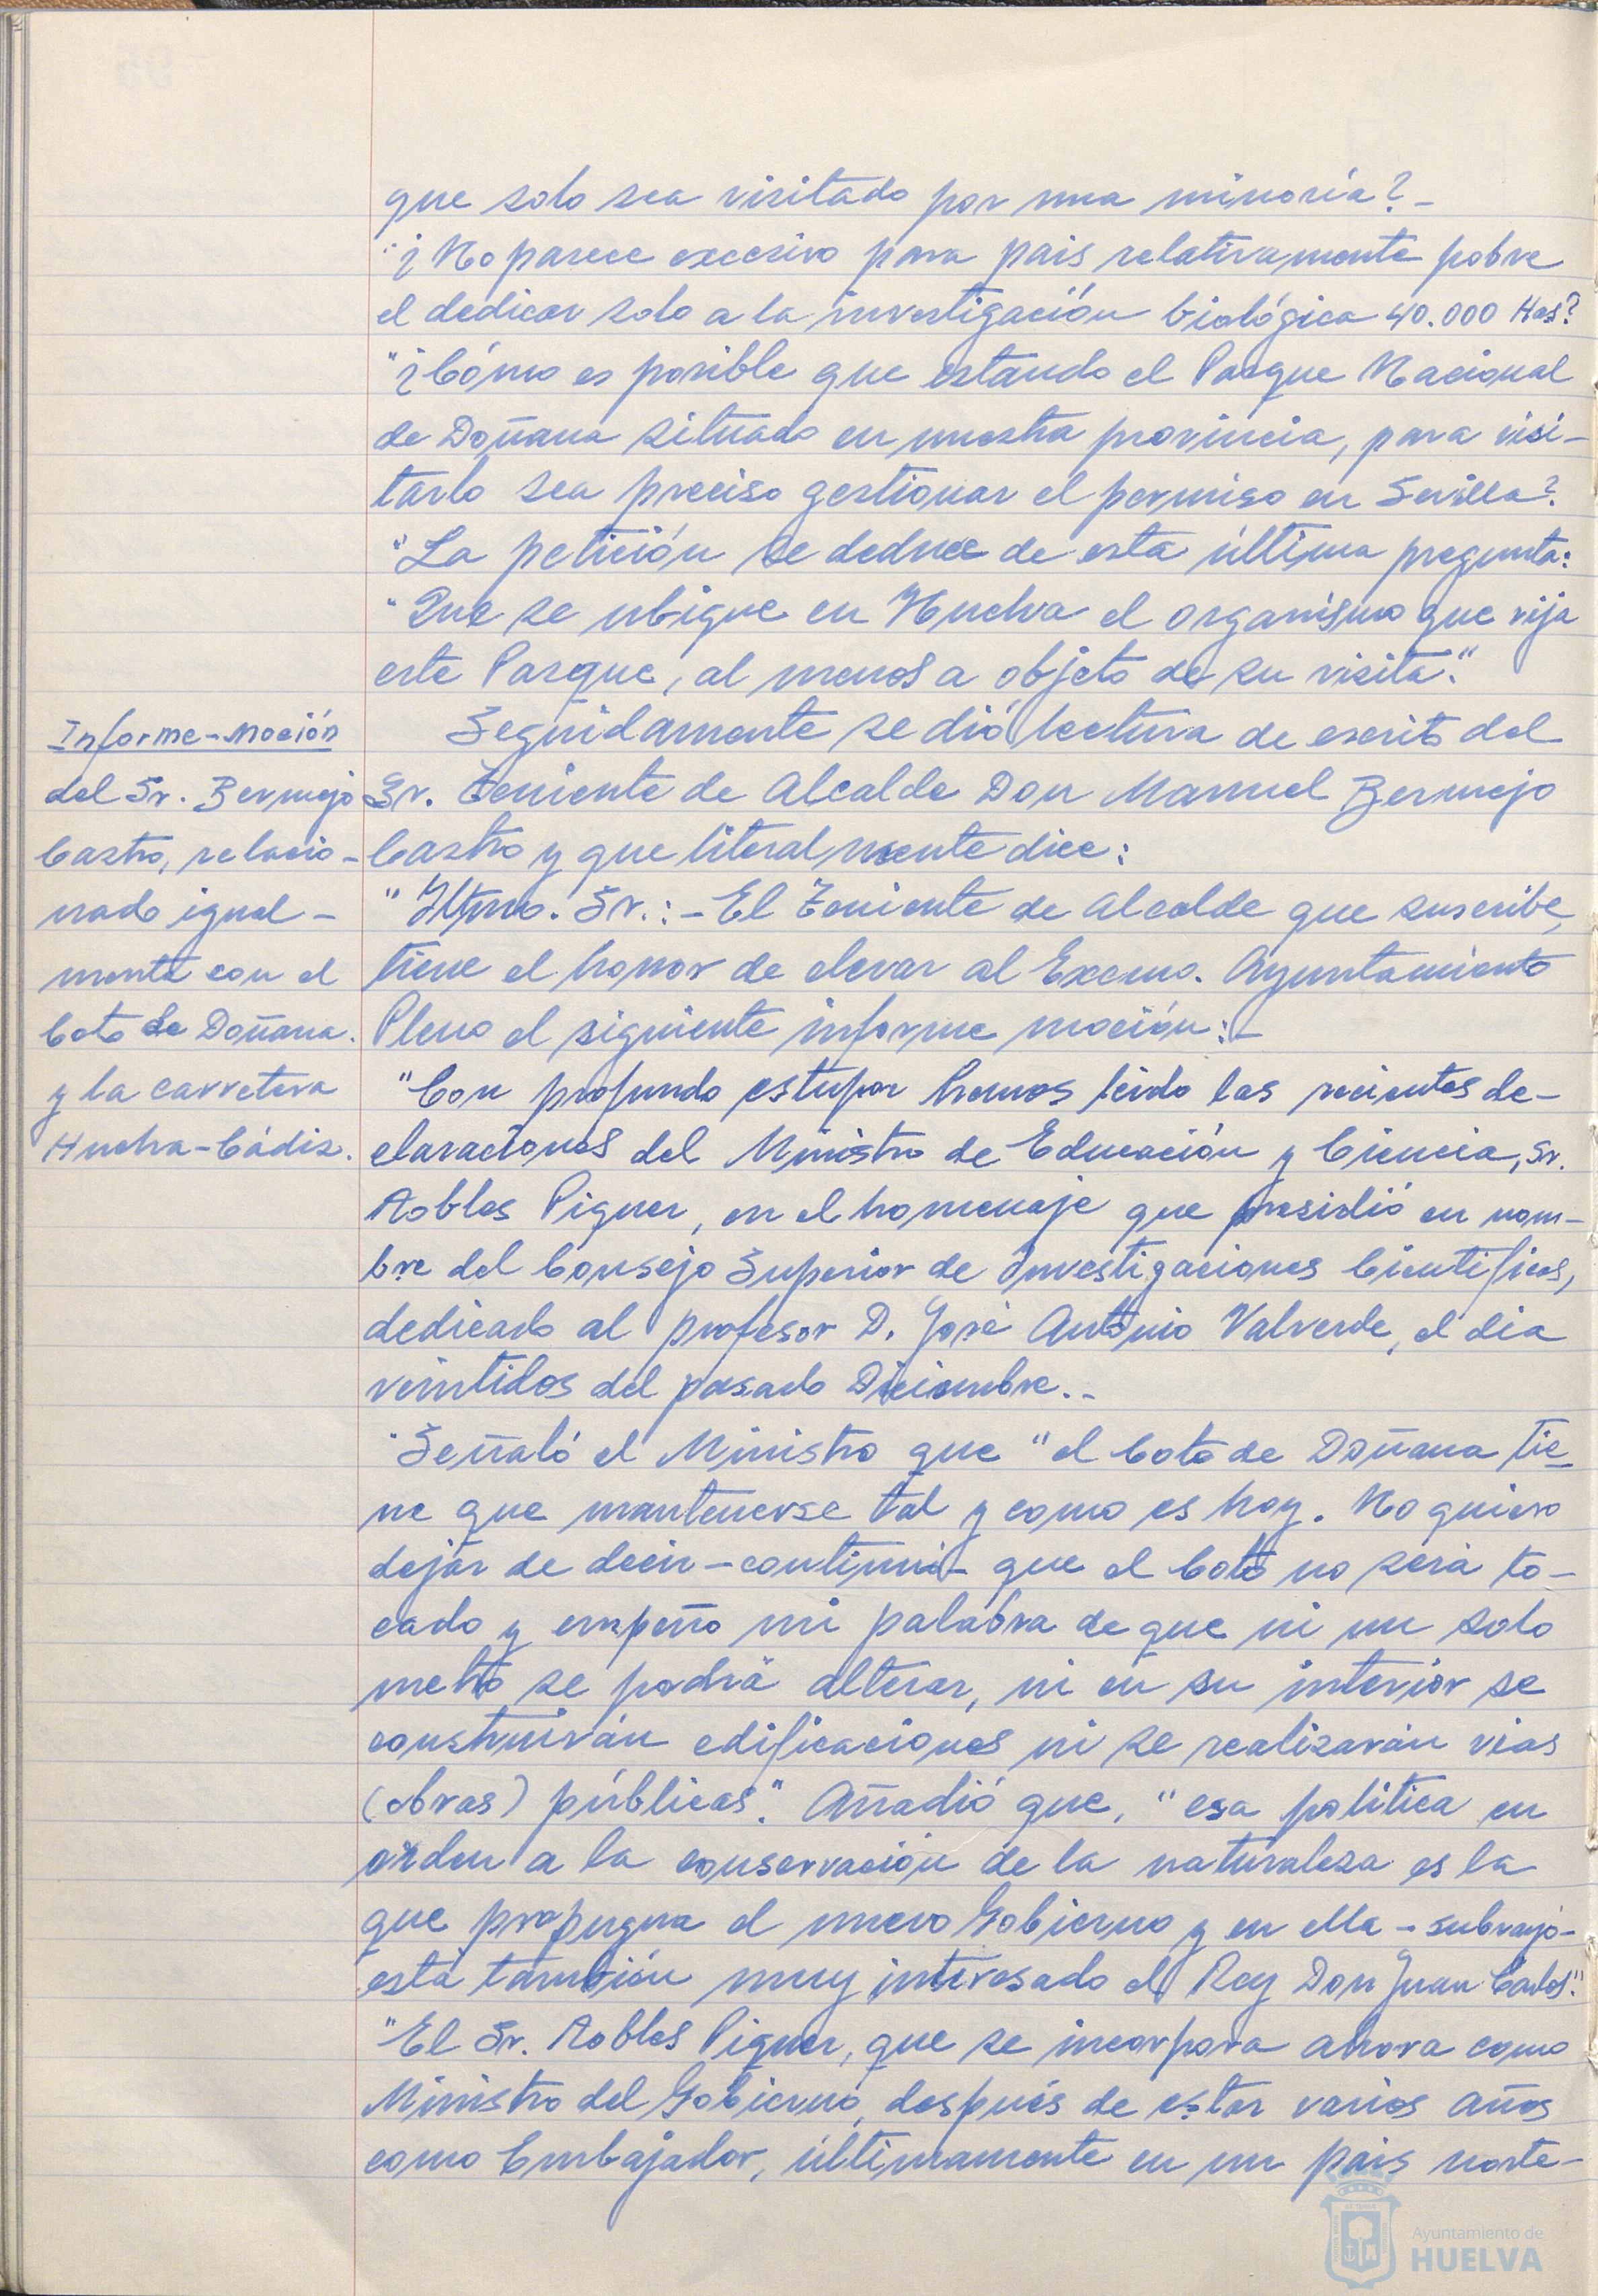 que solo sea visitado por una minoría?-
"¿No parece excesivo para pais relativamente pobre
el dedicar solo a la investigación biológica 40.000 Has?
"¿Cómo es posible que estando el Parque Nacional
de Doñana situado en nuestra provincia, para visi-
tarlo sea preciso gestionar el permiso en Sevilla?
"La petición se deduce de esta última pregunta:
"Que se ubique en Huelva el organismo que rija
este Parque, al menos a objeto de su visita."
Informe-moción
del Sr. Bermejo
Castro, relacio-
nado igual-
mente con el
Coto de Doñana.
y la carretera
Huelva-Cádiz.
Seguidamente se dió lectura de escrito del
Sr. Teniente de Alcalde Don Manuel Bermejo
Castro y que literalmente dice:
"Iltmo. Sr.:-El Teniente de Alcalde que suscribe,
tiene el honor de elevar al Excmo. Ayuntamiento
Pleno el siguiente informe moción:-
"Con profundo estupor hemos leido las recientes de-
claraciones del Ministro de Educación y Ciencia, Sr.
Robles Piquer, en el homenaje que presidió en nom-
bre del Consejo Superior de Investigaciones Cientificas,
dedicado al profesor D. José Antonio Valverde, el dia
veintidos del pasado Diciembre.-
"Señaló el Ministro que "el Coto de Doñana tie-
ne que mantenerse tal y como es hoy. No quiero
dejar de decir-continuó-que el Coto no será to-
cado y empeño mi palabra de que ni un solo
metro se podrá alterar, ni en su interior se
construirán edificaciones ni se realizarán vias
(obras) públicas". Añadió que, "esa politica en
orden a la conservación de la naturaleza es la
que propugna el nuevo Gobierno y en ella -subrayó-
está también muy interesado el Rey Don Juan Carlos".
"El Sr. Robles Piquer, que se incorpora ahora como
Ministro del Gobierno, después de estar varios años
como Embajador, últimamente en un pais norte-
Ayuntamiento de
HUELVA